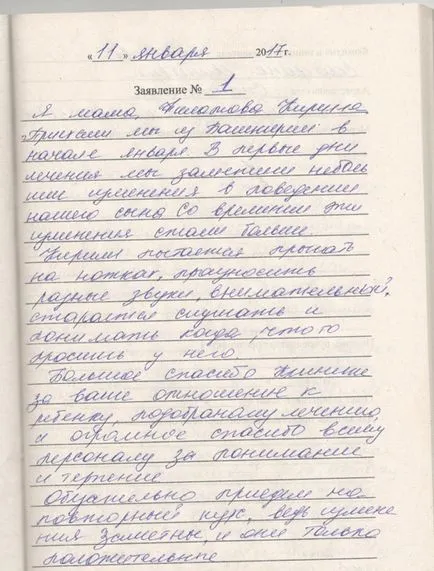 «11» января 2017г.
Заявление № 1
Я мама, Филатова Кирилла
Приехали мы из Башкирии в
начале января. В первые дни
лечения мы заметили неболь
шие изменения в поведение
нашего сына со временем эти
изменения стали больше.
Кирилл пытается прыгать
на ножках, произносить
разные звуки, внимательный,
старается слушать и
понимать когда, что то
просишь у него.
Большое спасибо Клинике
за ваше отношение к
ребенку, подобраному лечению,
и огромное спасибо всему
персоналу за понимание
и терпение
Обязательно приедем на
повторный курс, ведь измене
ния заметны, и они только
положительные